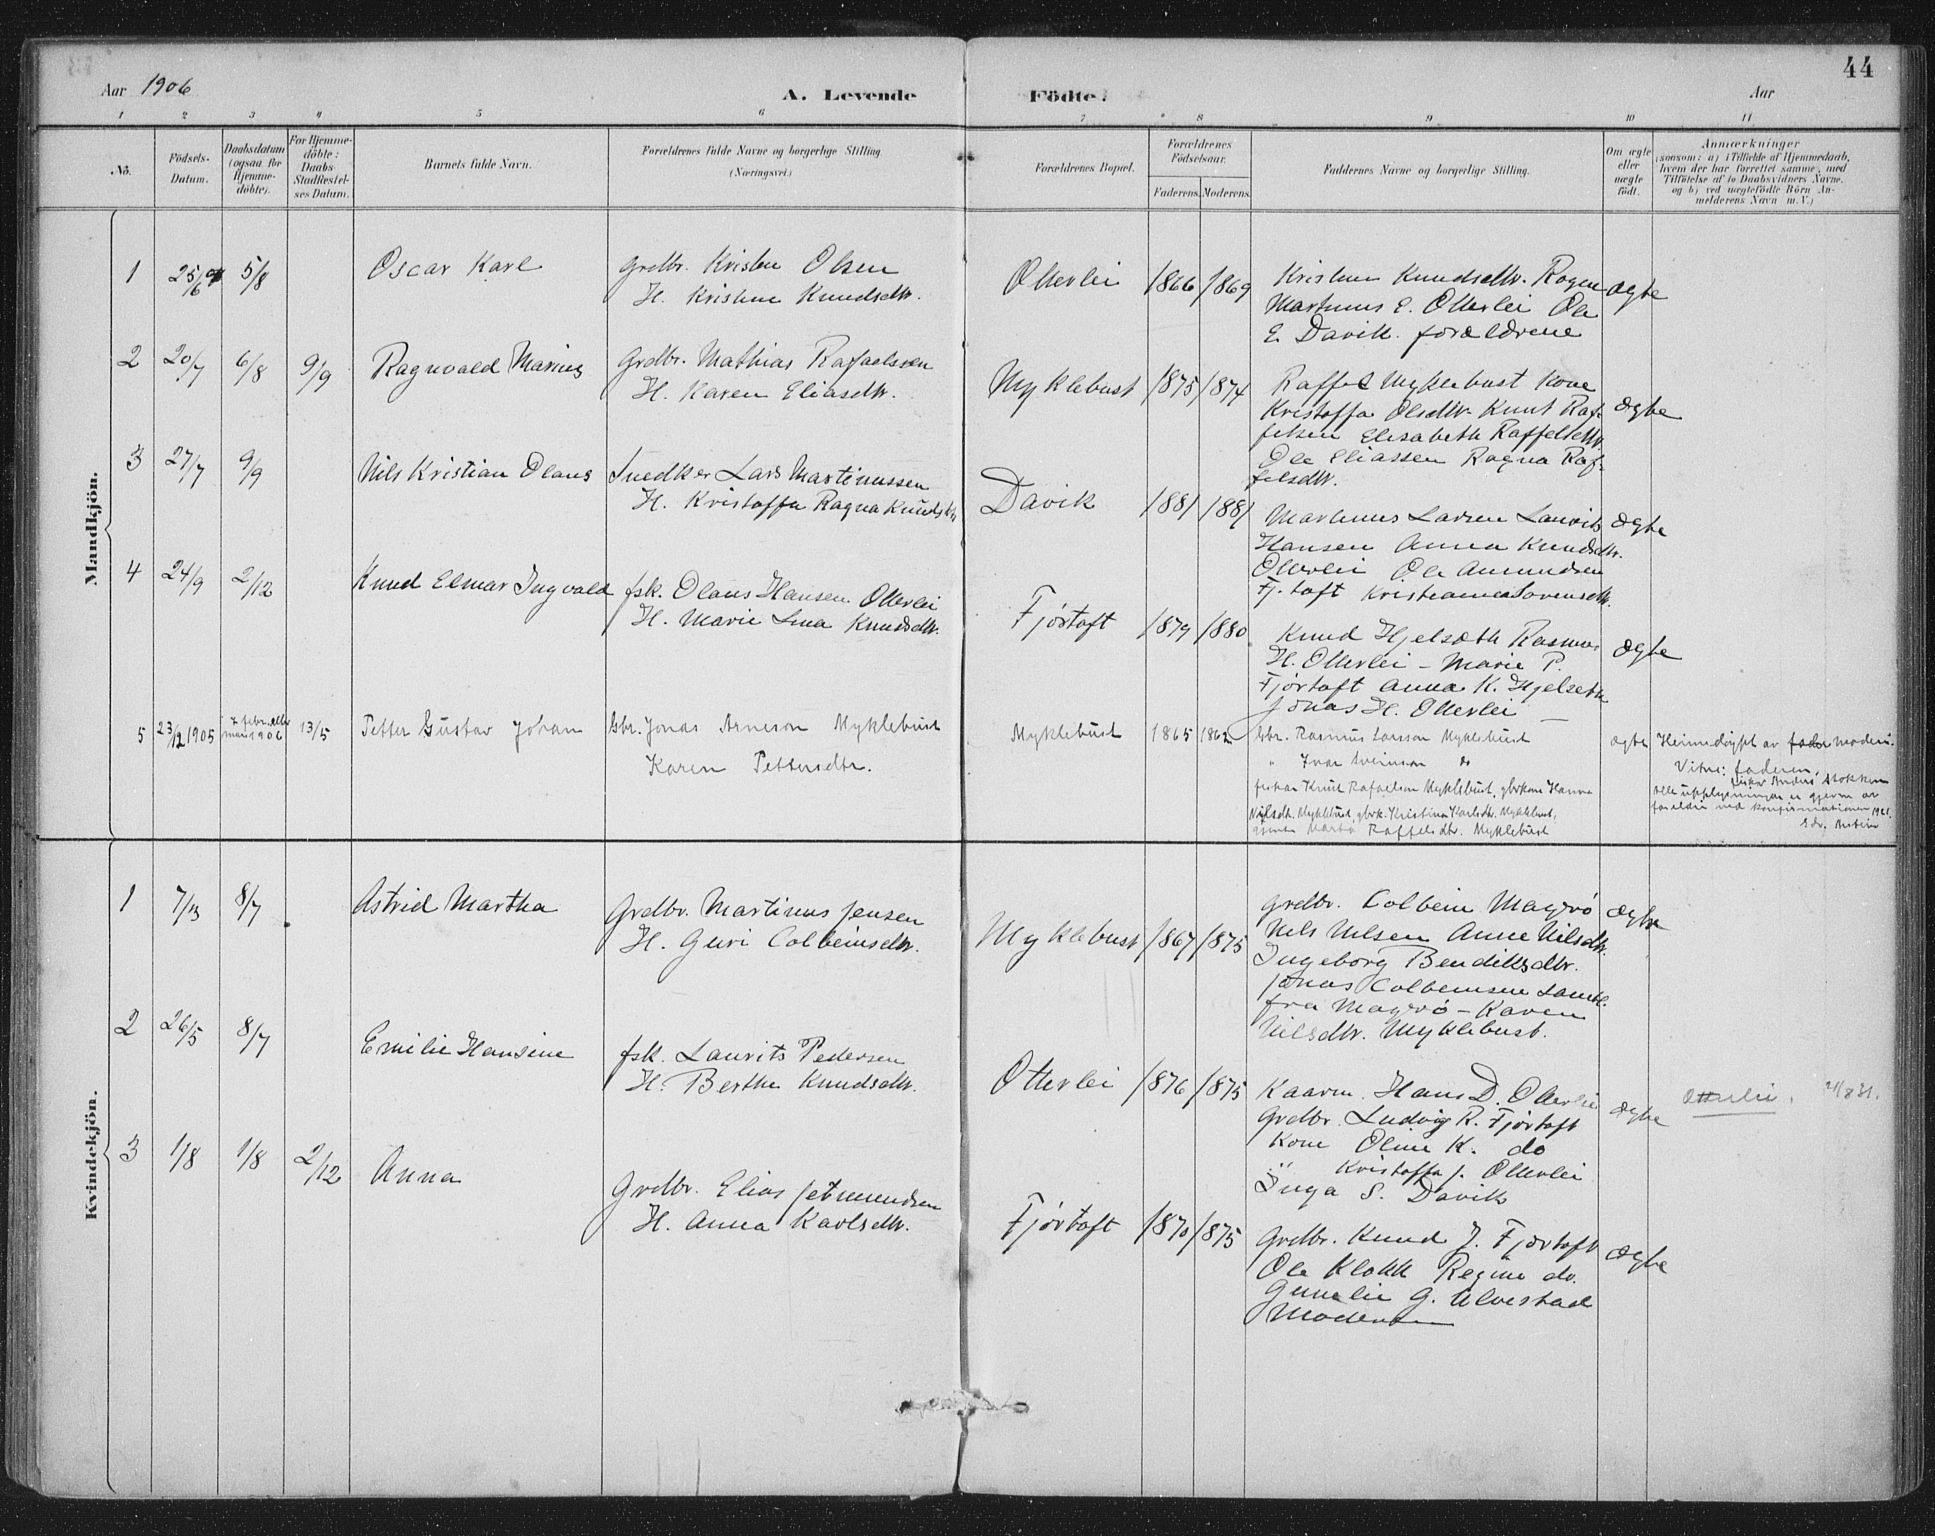 44
Aar 1906
A. Levende
Födte.
Aar
1 2 3 4 5 6 7 8 9 10 11
No.
Födsels-
Datum.
Daabsdatum
(ogsaa for
Hjemme-
döbte).
For Hjemme-
döbte:
Daabs
Stadfæstel-
ses Datum.
Barnets fulde Navn.
Forældrenes fulde Navne og borgerlige Stilling
(Næringsvei.)
Forældrenes Bopæl.
Forældrenes
Födselsaar.
Faderens. Moderens.
Faddernes Navne og borgerlige Stilling.
Om ægte
eller
uægte
födt.
Anmærkninger
(saasom: a) i Tilfælde af Hjemmedaab,
hvem der har forrettet samme, med
Tilföielse af to Daabsvidners Navne.
og b) ved uægtefödte Börn An-
melderens Navn m. V.)
Mandkjön.
1 25/6 5/8 Oscar Karl
Grdbr. Kristen Olsen
H. Kristine Knudsdtr.
Otterlei 1866 1869
Kristine Knudsdtr. Ragna
Martinus E. Otterlei Ole
E. Davik. forældrene
ægte
2 20/7 6/8 9/9 Ragnvald Marius
Grdbr. Mathias Rafaelsen
H. Karen Eliasdtr.
Myklebust 1875 1874
Raffel Myklebust Kone
Kristoffa Olsdtr Knut Raf-
felsen Elisabeth Raffelsdtr.
Ole Eliassen Ragna Raf-
felsdtr.
ægte
3 27/7 9/9 Nils Kristian Olaus
Snedker Lars Martinussen
H. Kristoffa Ragna Knudsdtr
Davik 1881 1881
Martinus Larsen Laurits
Hansen Anna Knudsdtr.
Otterlei Ole Amundsen
Fj.toft Kristianna Sorensdtr.
ægte
4 24/9 2/12 Knud Elmar Ingvald
fsk. Olaus Hansen Otterlei
H. Marie Lina Knudsdtr.
Fjørtoft 1879 1880
Knud Hjelseth Rasmus
H. Otterlei - Marie P.
Fjørtoft Anna K. Hjelseth
Jonas H. Otterlei
ægte
5 23/12 1905 7 febr. eller
mars 1906 13/5 Petter Gustav Johan
Gbr. Jonas Arneson Myklebust
Karen Pettersdtr.
Myklebust 1865 1862
Gbr. Rasmus Larsson Myklebust
" Ivar Sveinson do
fiskar Knut Rafaelson Myklebust, gbrkone Hanna
Nilsdtr. Myklebust, gbrk. Kristina Karlsdtr. Myklebust,
gjenta Marta Raffelsdtr. Myklebust
ægte
Heimedøypt av fader moderi.
Vitne: faderen,
fisker Anders Stokken
Alle upplysningar er gjevne av
foreldri ved konfirmationen 1921.
Kvindekjön.
1 7/13 8/7 Astrid Martha
Grdbr. Martinus Jensen
H. Guri Colbeinsdtr.
Myklebust 1867 1875
Grdbr. Colbein Magerø
Nils Nilsen Anne Nilsdtr.
Ingeborg Bendiksdtr.
Jonas Colbeinsen samtl.
fra Magerø - Karen
Nilsdtr. Myklebust.
ægte
2 26/5 8/7 Emilie Hansine
fsk. Laurits Pedersen
H. Berthe Knudsdtr.
Otterlei 1876 1875
Kaarm. Hans D. Otterlei
Grdbr. Ludvig R. Fjørtoft
Kone Oline K. do
" Kristoffa J. Otterlei
Inga S. Davik
ægte
Otterlei. 21/8 31.
3 1/8 1/8 2/12 Anna
Grdbr. Elias Jetmundsen
H. Anna Karlsdtr.
Fjørtoft 1870 1875
Grdbr. Knud J. Fjørtoft
Ole Klokk Regine do.
Gunelie G. Ulvestad
Moderen
ægte